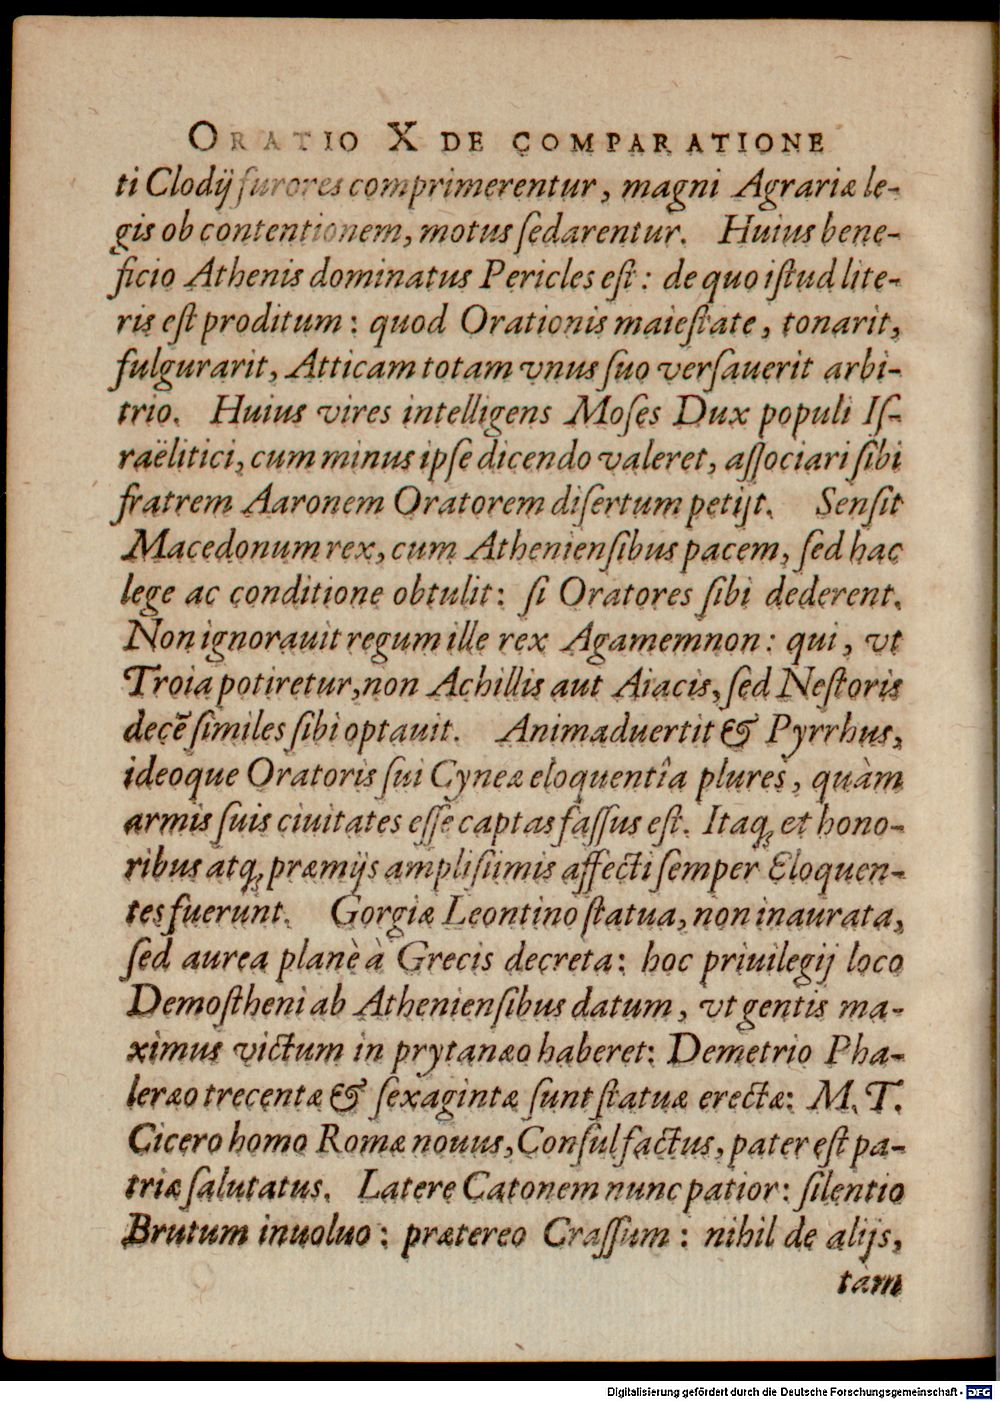 ORATIO X DE COMPARATIONE
ti Clodij furores comprimerentur, magni Agrariæ le-
gis ob contentionem, motus ſedarentur. Huius bene-
ficio Athenis dominatus Pericles eſt: de quo iſtud lite-
ris eſt proditum: quod Orationis maieſtate, tonarit,
fulgurarit, Atticam totam vnus ſuo verſauerit arbi-
trio. Huius vires intelligens Moſes Dux populi Iſ-
raëlitici, cum minus ipſe dicendo valeret, aſſociari ſibi
fratrem Aaronem Oratorem diſertum petijt. Senſit
Macedonum rex, cum Athenienſibus pacem, ſed hac
lege ac conditione obtulit: ſi Oratores ſibi dederent.
Non ignorauit regum ille rex Agamemnon: qui, vt
Troia potiretur, non Achillis aut Aiacis, ſed Neſtoris
decē ſimiles ſibi optauit. Animaduertit & Pyrrhus,
ideoque Oratoris ſui Cyneæ eloquentîa plures, quàm
armis ſuis ciuitates eſſe captas faſſus eſt. Itaq; et hono-
ribus atq; præmijs ampliſsimis affecti ſemper Eloquen-
tes fuerunt. Gorgiæ Leontino ſtatua, non inaurata,
ſed aurea planè à Grecis decreta: hoc priuilegij loco
Demoſtheni ab Athenienſibus datum, vt gentis ma-
ximus victum in prytanæo haberet: Demetrio Pha-
leræo trecentæ & ſexagintæ ſunt ſtatuæ erectæ: M. T.
Cicero homo Romæ nouus, Conſul factus, pater eſt pa-
triæ ſalutatus. Latere Catonem nunc patior: ſilentio
Brutum inuoluo: prætereo Craſſum: nihil de alijs,
tam
Digitalisierung gefördert durch die Deutsche Forschungsgemeinschaft - DFG